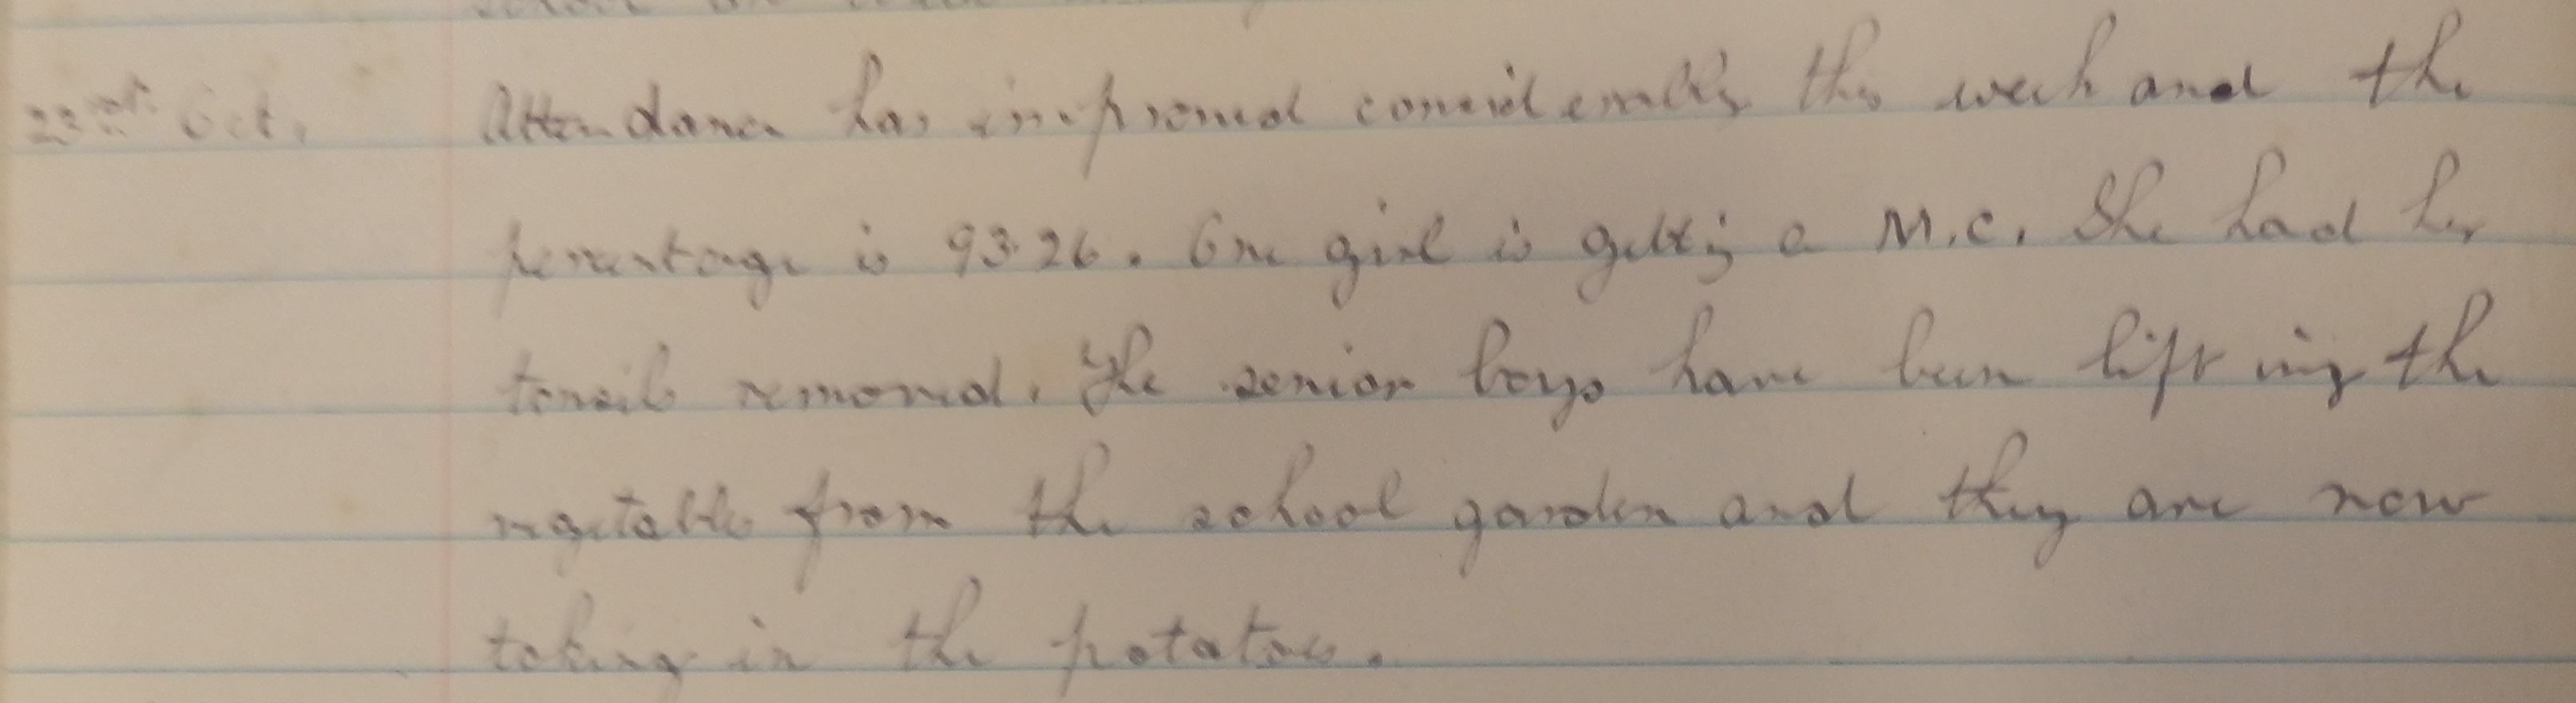 22nd Oct. Attendance has improved considerably this week and the
percentage is 93.26. One girl is getting a M.C. She had her
tonsils removed. The senior boys have been lifting the
vegetables from the school garden and they are now
taking in the potatoes.